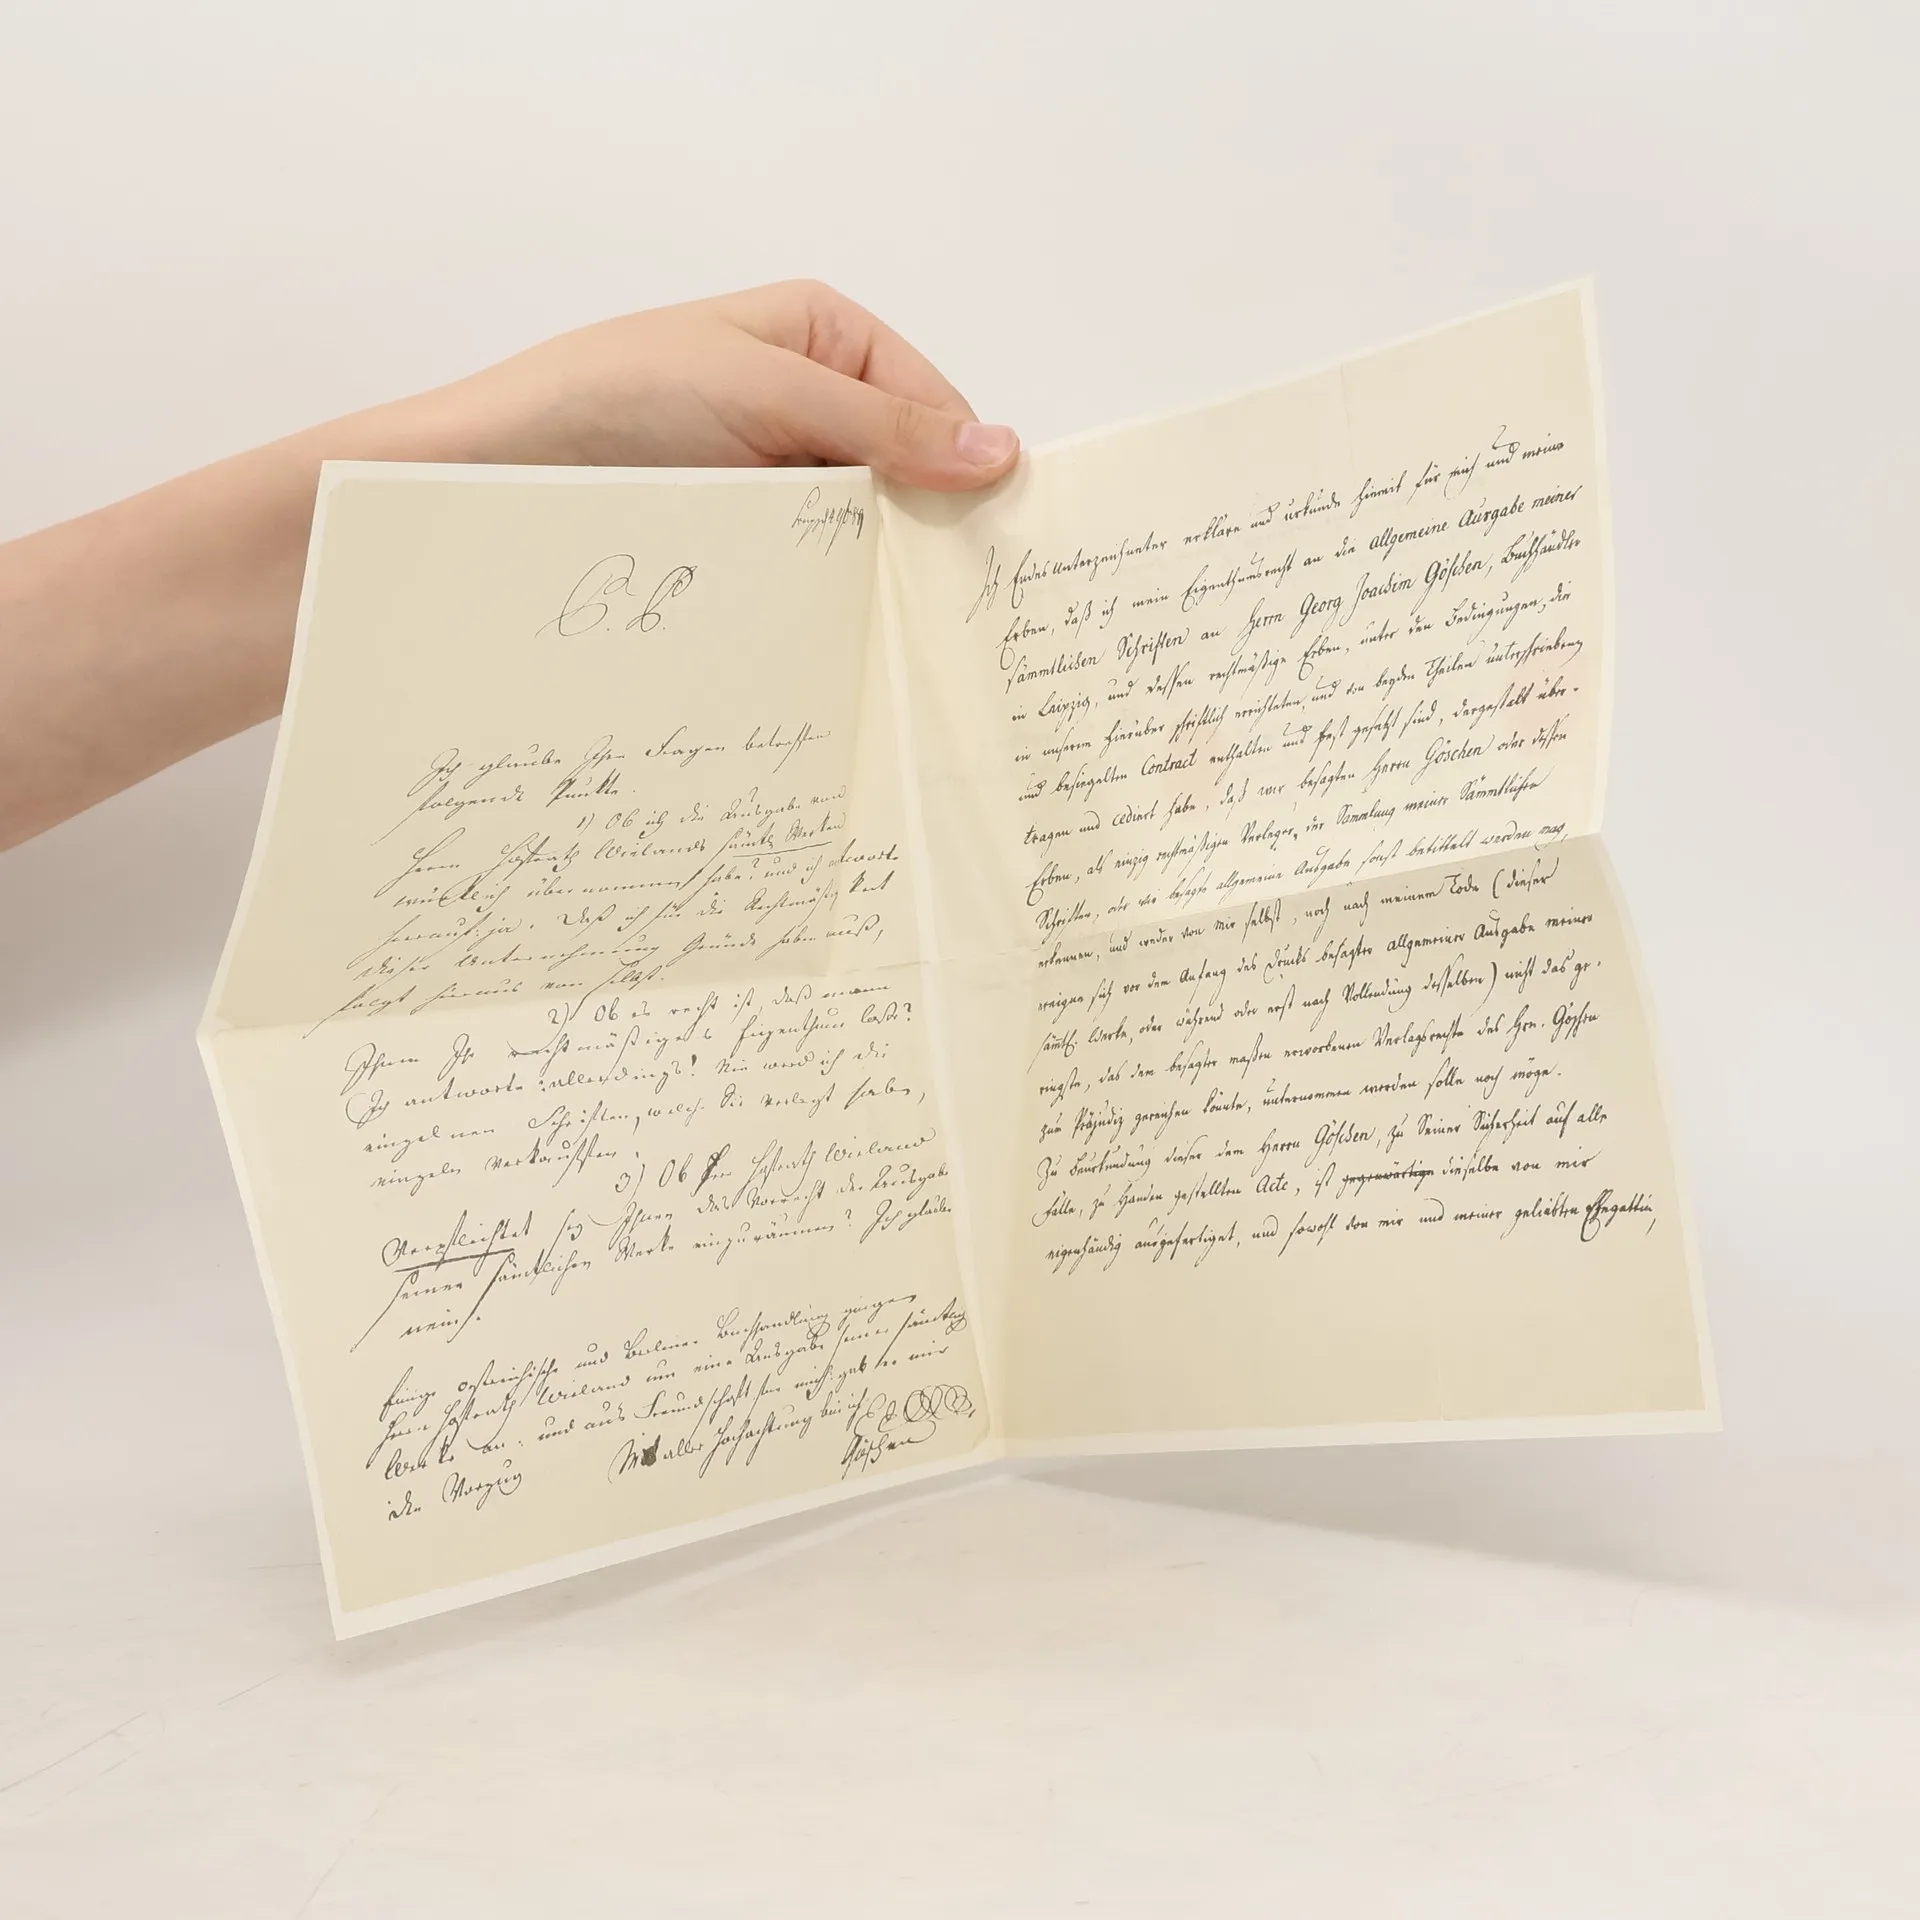 P. P.
Ich glaube Ihre Fragen betreffen
folgende Punkte.
1) Ob ich die Ausgabe von
Herrn Hofrath Wielands sämtl. Werken
würklich übernommen habe? und ich antworte
hierauf: ja. Daß ich für die Rechtmäßigkeit
dieser Unternehmung Gründe haben muß,
folgt hieraus von selbst.
2) Ob es recht ist, daß mann
Ihnen Ihr rechtmäßiges Eigenthum laße?
Ich antworte: allerdings! Nie werd ich die
einzelnen Schriften, welche Sie verlegt haben,
einzeln verkauffen.
3) Ob Hr Hofrath Wieland
Verpflichtet sey Ihnen das Vorrecht der Ausgabe
seiner sämtlichen Werke einzuräumen? Ich glaube
nein.
Einige östreichische und Berliner Buchhandlung gingen
Herrn Hofrath Wieland um eine Ausgabe seiner sämtlichen
Werke an: und aus Freundschaft für mich gab er mir
den Vorzug
Mit aller Hochachtung bin ich
Göschen
Ich Endes Unterzeichneter erkläre und urkunde hiemit für mich und meine
Erben, daß ich mein Eigenthumsrecht an die allgemeine Ausgabe meiner
sämmtlichen Schriften an Herrn Georg Joachim Göschen, Buchhändler
in Leipzig, und dessen rechtmäßige Erben, unter den Bedingungen, die
in unserm hierüber schriftlich errichteten, und von beyden Theilen unterschriebenen
und besiegelten Contract enthalten und fest gesetzt sind, dergestalt über-
tragen und cediert habe, daß wir besagten Herrn Göschen oder dessen
Erben, als einzig rechtmäßigen Verleger, der Sammlung meiner Sämmtlichen
Schriften, oder wie besagte allgemeine Ausgabe sonst betittelt werden mag,
erkennen, und weder von mir selbst, noch nach meinem Tode (dieser
ereigne sich vor dem Anfang des Drucks besagter allgemeiner Ausgabe meiner
sämtl. Werke, oder während oder erst nach Vollendung desselben) nicht das ge-
ringste, das dem besagter maßen erworbenen Verlagsrechte des Hrn. Göschen
zum Präjudiz gereichen könnte, unternommen werden solle noch möge.
Zu Beurkundung dieser dem Herrn Göschen, zu Seiner Sicherheit auf alle
Fälle, zu Handen gestellten Acte, ist gegenwärtige dieselbe von mir
eigenhändig ausgefertiget, und sowohl von mir und meiner geliebten Ehegattin,